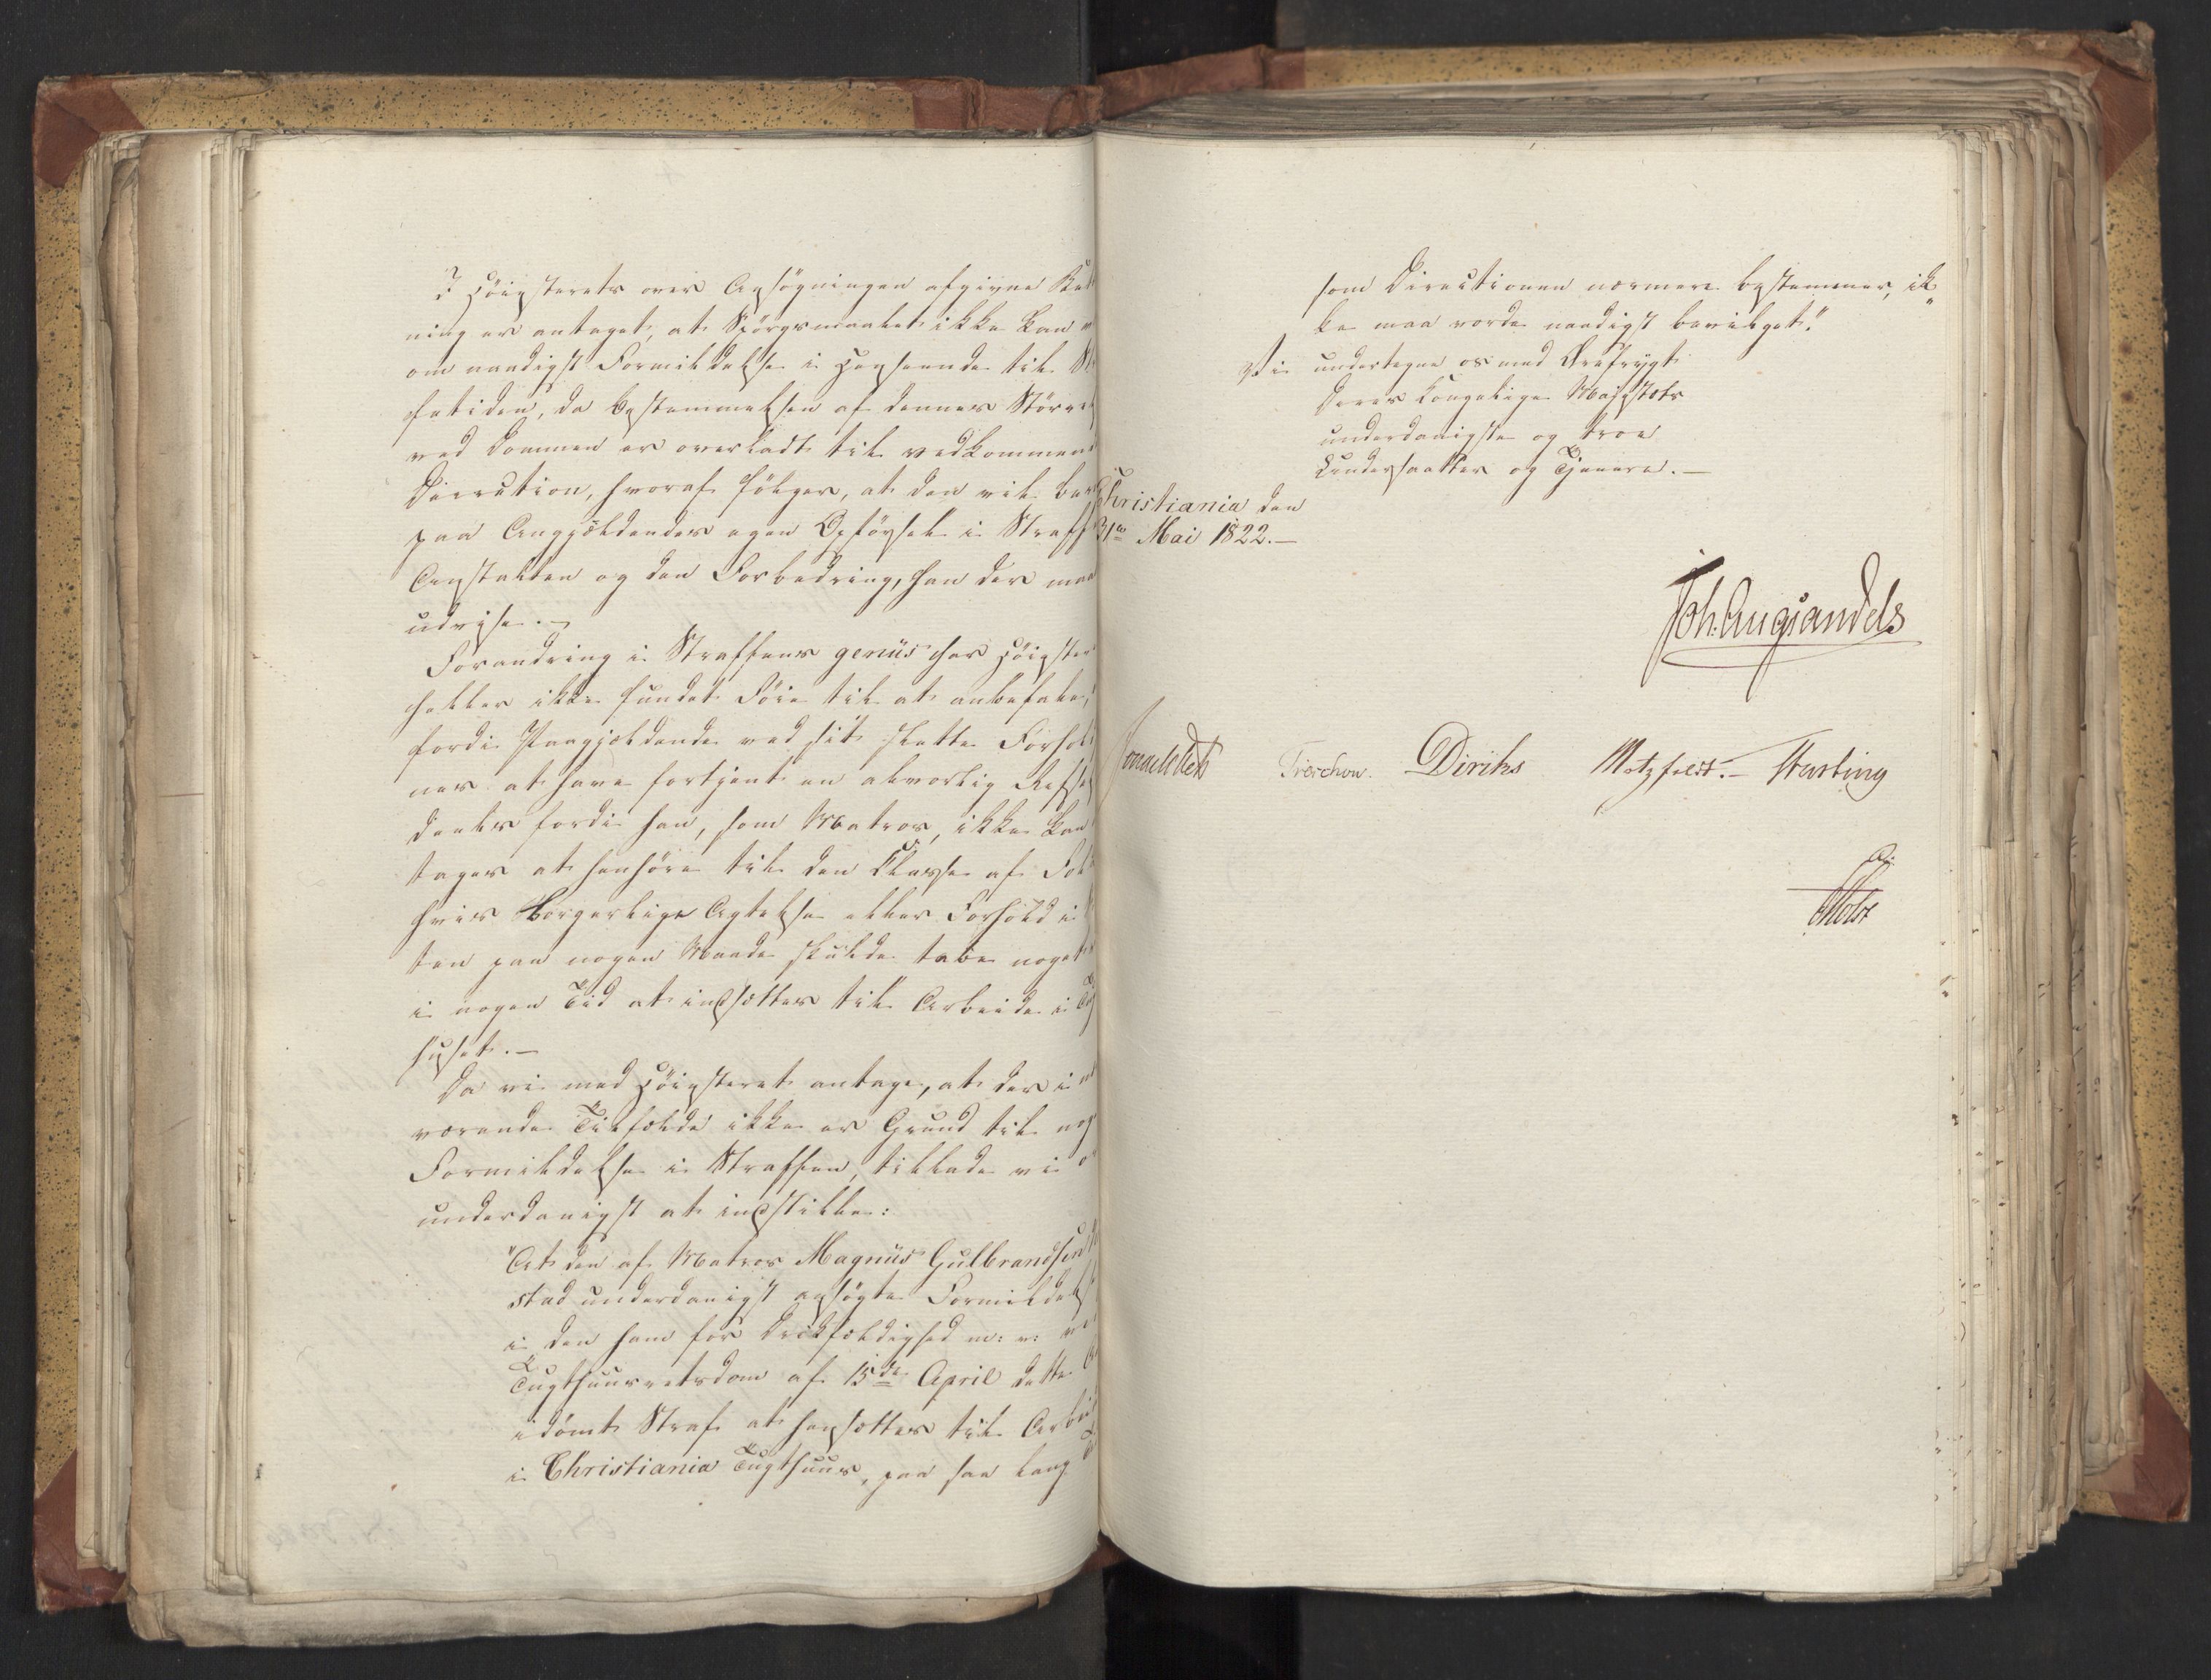 I Höiesterets over Ansögningen afgivne Betænk
ning er antaget, at Spörgsmaalet ikke kan
om naadigst Formildelse i Henseende til
fetiden, da Bestemmelsen af dennes Större
ved Dommen er overladt til vedkommende
Direction, hvoraf fölger, at den vil be
paa Angjældendes egen Opförsel i Straf
Anstalten og den Forbedring, han der maa
udvise. —
Forandring i Straffens genus har Höieste
heller ikke fundet Föie til at anbefale,
fordi Paagjældende ved sit slette Forhold
nes at have fortjent en alvorlig Refsel
deels fordi han, som Matros, ikke kan
tages at henhöre til den Classe af Folk
hvis borgerlige Agtelse eller Forhold i
ten paa nogen Maade skulde tabe noget
i nogen Tid at indsættes til Arbeide i
huset. —
Da vi med Höiesteret antage, at der i
værende Tilfælde ikke er Grund til nog
Formildelse i Straffen, tillade vi o
underdanigst at indstille:
"At den af Matros Magnus Gulbrandsen
stad underdanigst ansögte Formildels
i den ham for Drikfældighed m: v: ve
Tugthuusretsdom af 15de April dette
idömt Straf at hensættes til Arbei
i Christiania Tugthuus, paa saa lang
som Directionen nærmere bestemmer, ik
ke maa vorde naadigst bevilget."
Vi undertegne os med Ærefrygt
Deres Kongelige Majestæts
underdanigste og troe
Undersaatter og Tjenere. —
Christiania den
31te Mai 1822. —
Joh. Aug Sandels
Sommerfeldt Treschow. Diriks Motzfeldt. — Fasting
Holst